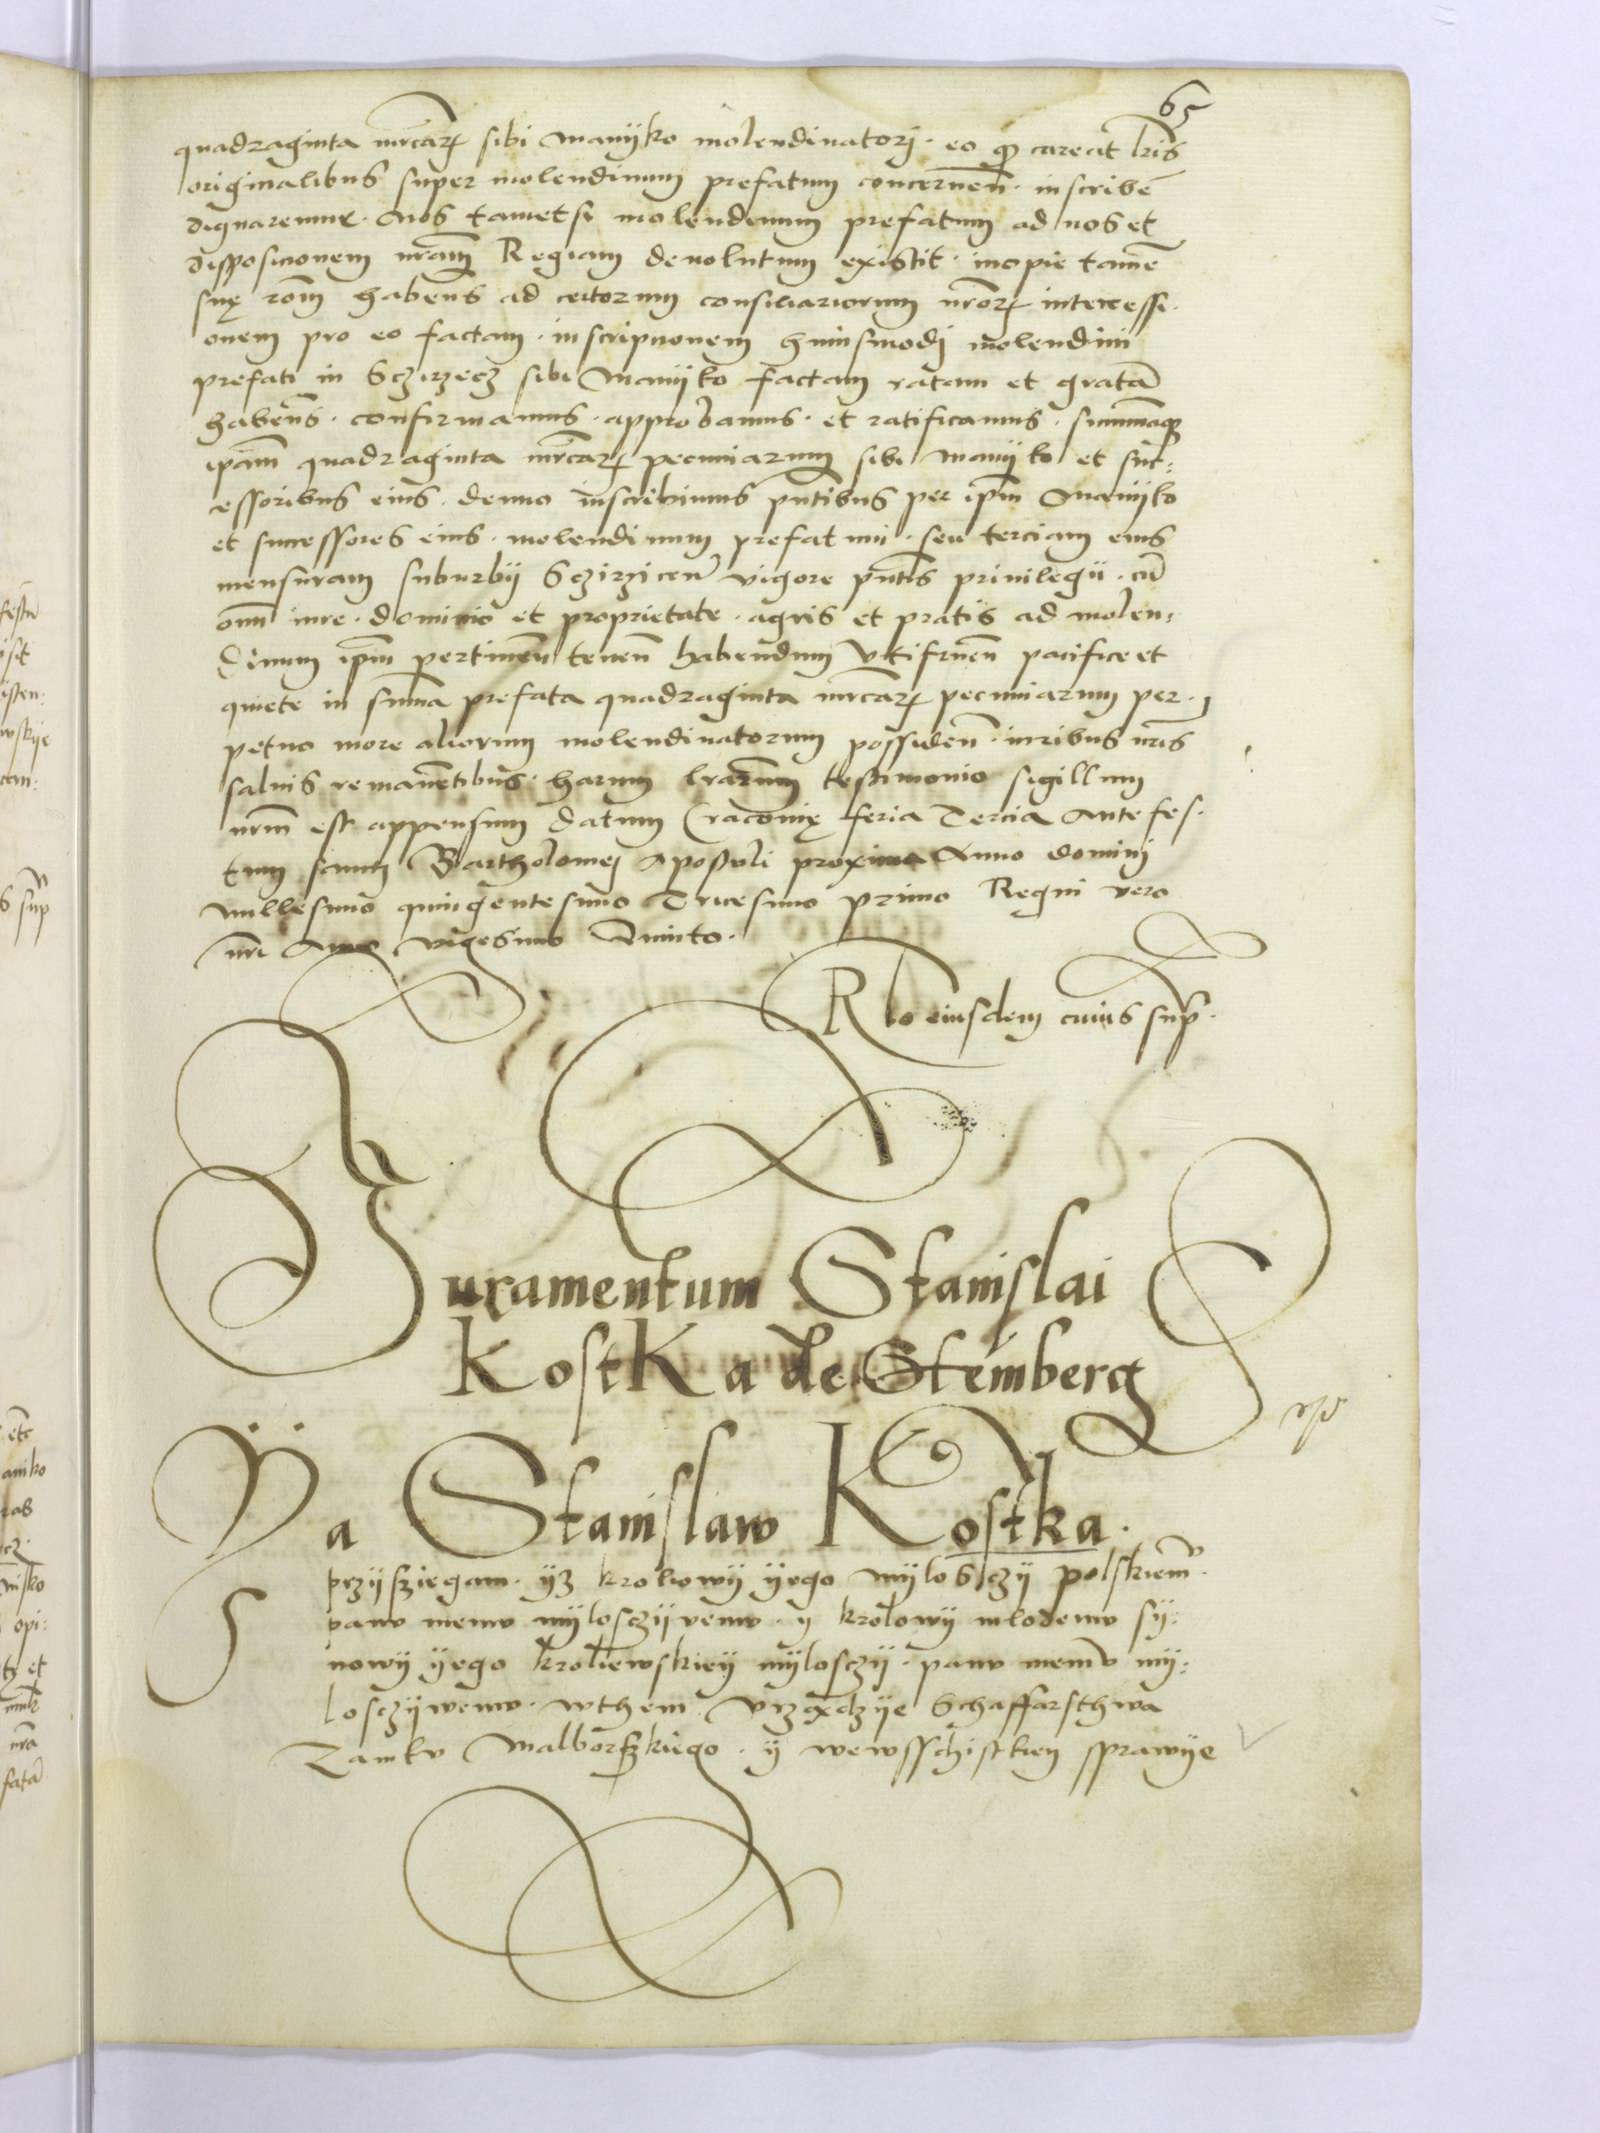 65
quadraginta mrcar sibi Manijko molendinatorj · eo q careat lris
originalibus super molendinum prefatum concernen · inscribe
dignaremur · Nos tametsi molendinum prefatum ad nos et
disposicionem nram Regiam devolutum existit · inopie tame
sue rom habens ad certorum consiliariorum nror intercessi-
onem pro eo factam · inscripcionem huiusmodj molendini
prefati in Sczirzecz sibi Manijko factam ratam et grata
habens · confirmamus · approbamus · et ratificamus · summaq
ipam quadraginta mrcar pecuniarum sibi Manijko et suc:
cessoribus eius · denuo inscribimus pntibus per ipm Manijko
et successores eius · molendinum prefatum · seu terciam eius
mensuram suburbij Sczirzicen vigore pntis privilegii · cu
omni iure · dominio et proprietate · agris et pratis ad molen:
dinum ipm pertinen tenen habendum vtifruen pacifice et
quiete in summa prefata quadraginta mrcar pecuniarum per-
petuo more aliorum molendinatorum possiden · iuribus nris
salvis remanentibus · harum lrarum testimonio sigillum
nrm est appensum Datum Cracovie feria Tercia Ante fes-
tum sancti Bartholomej Apostoli proxima Anno domini
millesimo quingentesimo Tricesimo primo Regni vero
nri Anno vigesimo Quinto ·
Rlo eiusdem cuius sup ·
Juramentum Stanislai
Kostka de Stemberg
Ya Stanislaw Kostka ·
przijsziegam · ijz kroliowij ijego mijlosczij polskiem ·
panv memv mijlosczijvemv · ij krolowij mlodemv sij:
nowij ijego kroliewskieij mijlosczij · panv memv mij:
losczijwemv · wthem vrzadzije Schaffarsthwa
Zamkv Malborskiego · ij wewsschistkieij sprawije